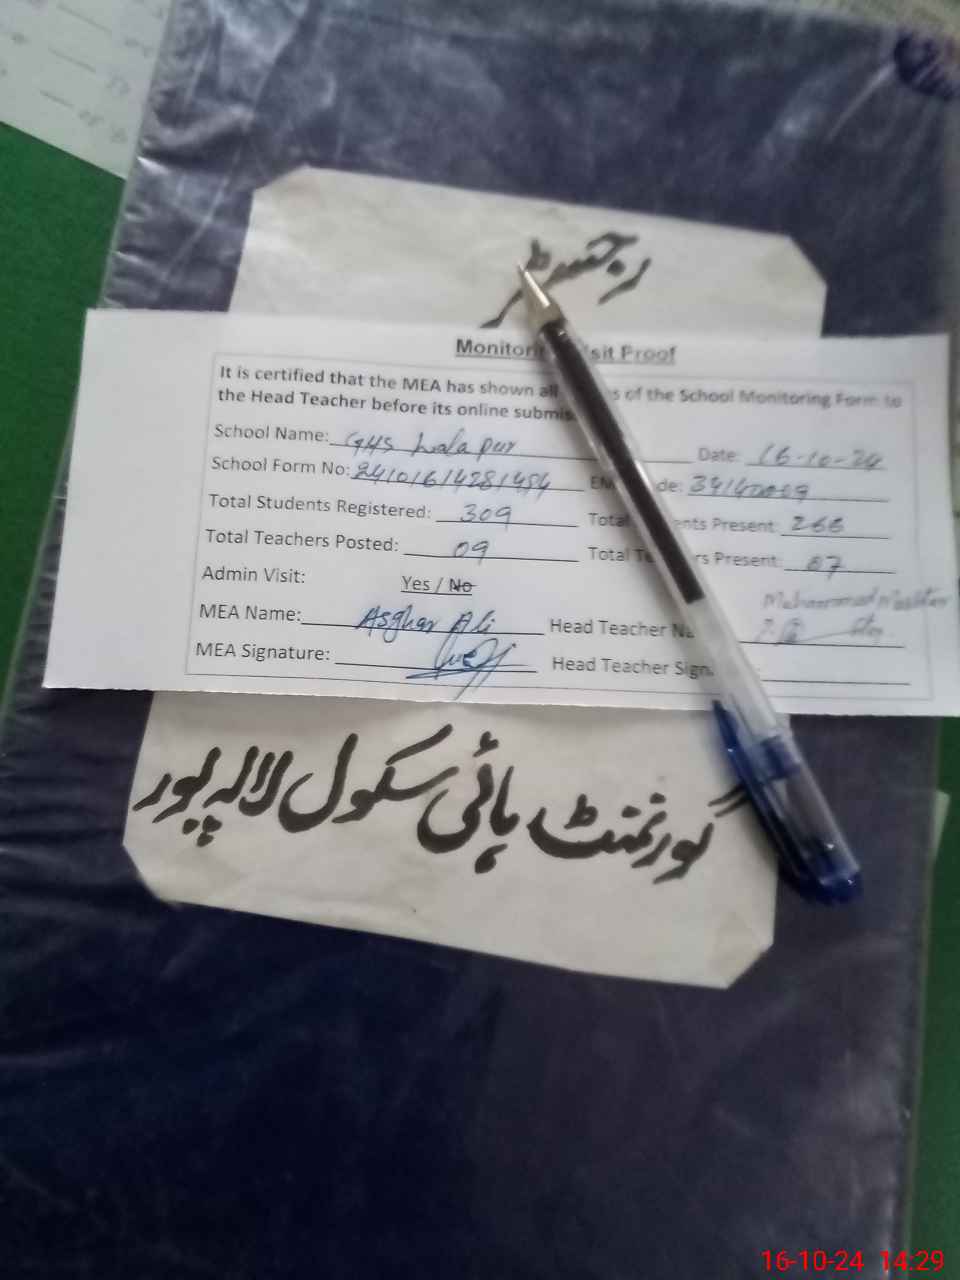 رجسٹر
Monitori sit Proof
It is certified that the MEA has shown all s of the School Monitoring Form to
the Head Teacher before its online submis
School Name: GHS Lala pur Date: 16-10-24
School Form No: 24101614281454 EM de:
Total Students Registered: 309 Total ents Present: 266
Total Teachers Posted: 09 Total Te rs Present: 07
Admin Visit: Yes / No
MEA Name: Asghar Ali Head Teacher Na Muhammad
MEA Signature: Head Teacher Sign
گورنمنٹ ہائی سکول لالہ پور
16-10-24 14:29